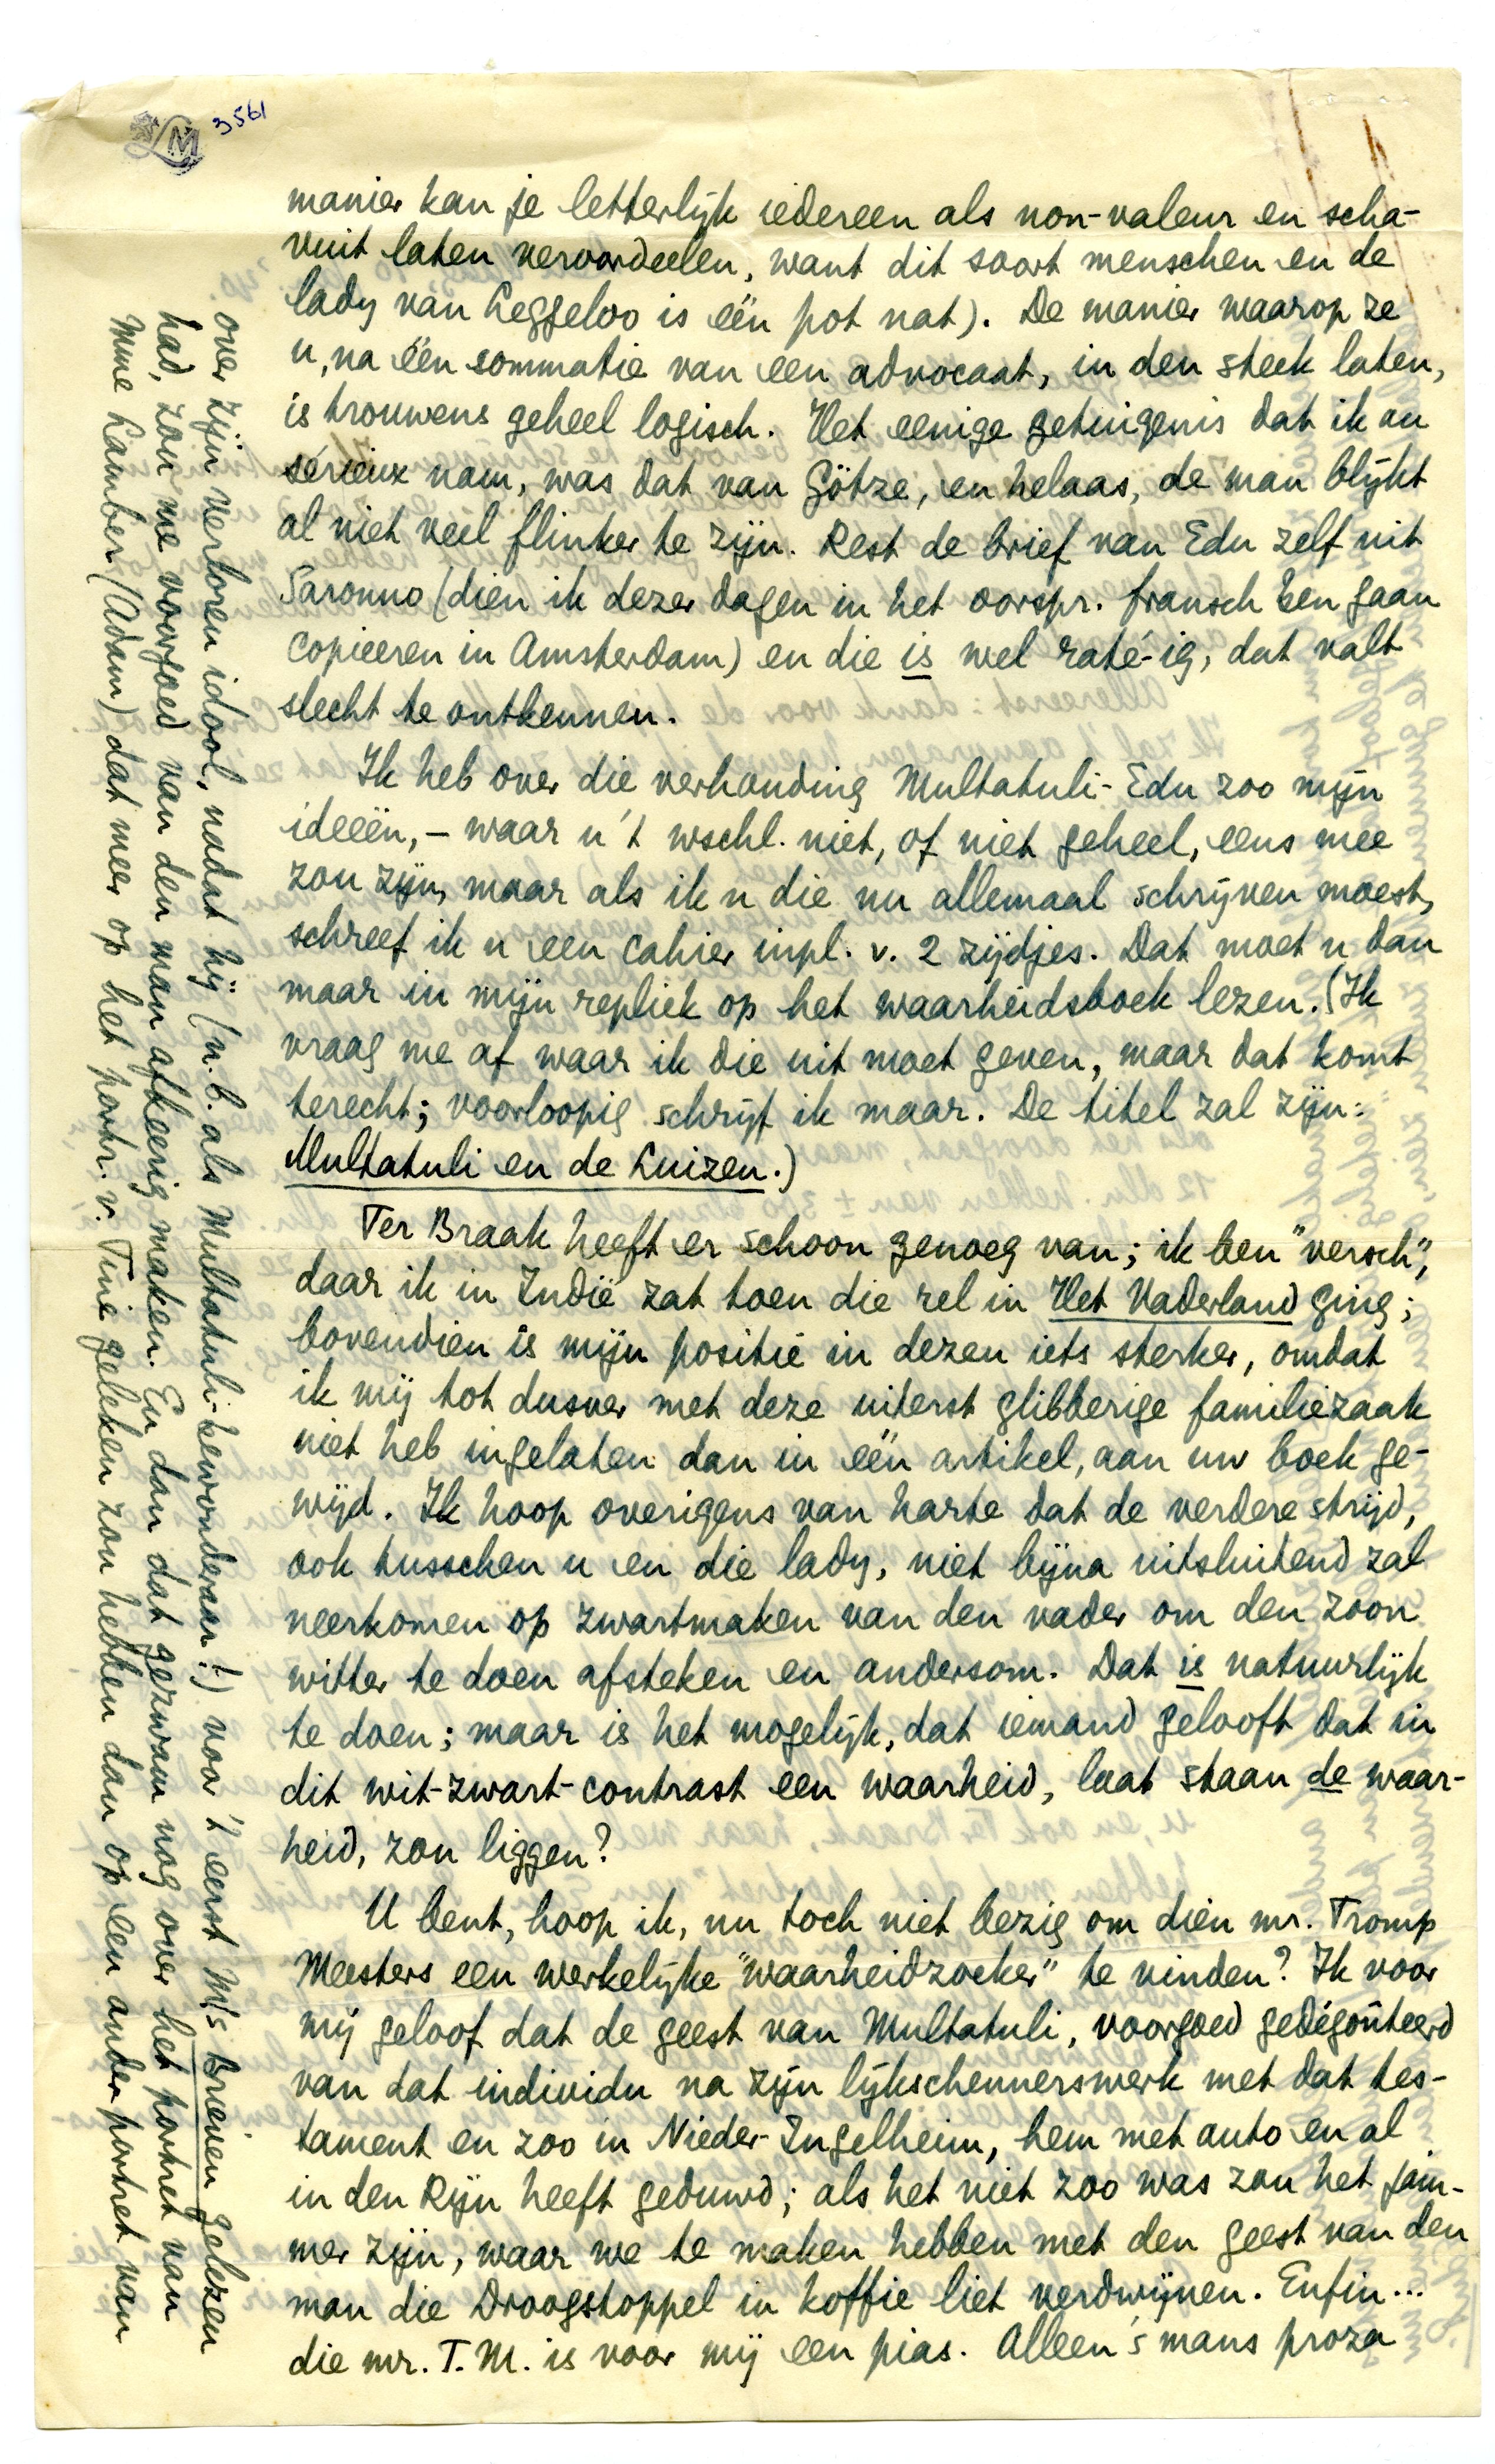 3561
LM
manier kan je letterlijk iedereen als non-valeur en scha-
vuit laten veroordeelen, want dit soort menschen en de
lady van Leggeloo is één pot nat). De manier waarop ze
u, na één sommatie van een advocaat, in den steek laten,
is trouwens geheel logisch. Het eenige getuigenis dat ik au
sérieux nam, was dat van Götze, en helaas, de man blijkt
al niet veel flinker te zijn. Rest de brief van Edu zelf uit
Saronno (dien ik dezer dagen in het oorspr. fransch ben gaan
copieeren in Amsterdam) en die is wel raté-ig, dat valt
slecht te ontkennen.
Ik heb over die verhouding Multatuli-Edu zoo mijn
ideeën, – waar u 't wschl. niet, of niet geheel, eens mee
zou zijn, maar als ik u die nu allemaal schrijven moest,
schreef ik u een cahier inpl. v. 2 zijdjes. Dat moet u dan
maar in mijn repliek op het waarheidsboek lezen. (Ik
vraag me af waar ik die uit moet geven, maar dat komt
terecht; voorloopig schrijf ik maar. De titel zal zijn:
Multatuli en de Luizen.)
Ter Braak heeft er schoon genoeg van; ik ben "versch",
daar ik in Indië zat toen die rel in Het Vaderland ging;
bovendien is mijn positie in dezen iets sterker, omdat
ik mij tot dusver met deze uiterst glibberige familiezaak
niet heb ingelaten dan in één artikel, aan uw boek ge-
wijd. Ik hoop overigens van harte dat de verdere strijd,
ook tusschen u en die lady, niet bijna uitsluitend zal
neerkomen op zwartmaken van den vader om den zoon
witter te doen afsteken en andersom. Dat is natuurlijk
te doen; maar is het mogelijk, dat iemand gelooft dat in
dit wit-zwart-contrast een waarheid, laat staan de waar-
heid, zou liggen?
U bent, hoop ik, nu toch niet bezig om dien mr. Tromp
Meesters een werkelijke "waarheidzoeker" te vinden? Ik voor
mij geloof dat de geest van Multatuli, voorgoed gedégoûteerd
van dat individu na zijn lijkschennerswerk met dat tes-
tament en zoo in Nieder-Ingelheim, hem met auto en al
in den Rijn heeft geduwd; als het niet zoo was zou het jam-
mer zijn, waar we te maken hebben met den geest van den
man die Droogstoppel in koffie liet verdwijnen. Enfin...
die mr. T.M. is voor mij een pias. Alleen 's mans proza
over zijn verloren idool, nadat hij (n.b. als Multatuli-bewonderaar!) voor 't eerst M's Brieven gelezen
had, zou me voorgoed van den man afkeerig maken. En dan dat gezwam nog over het portret van
Mme Lamber (Adam) dat meer op het portr. v. Tine geleken zou hebben dan op een ander portret van